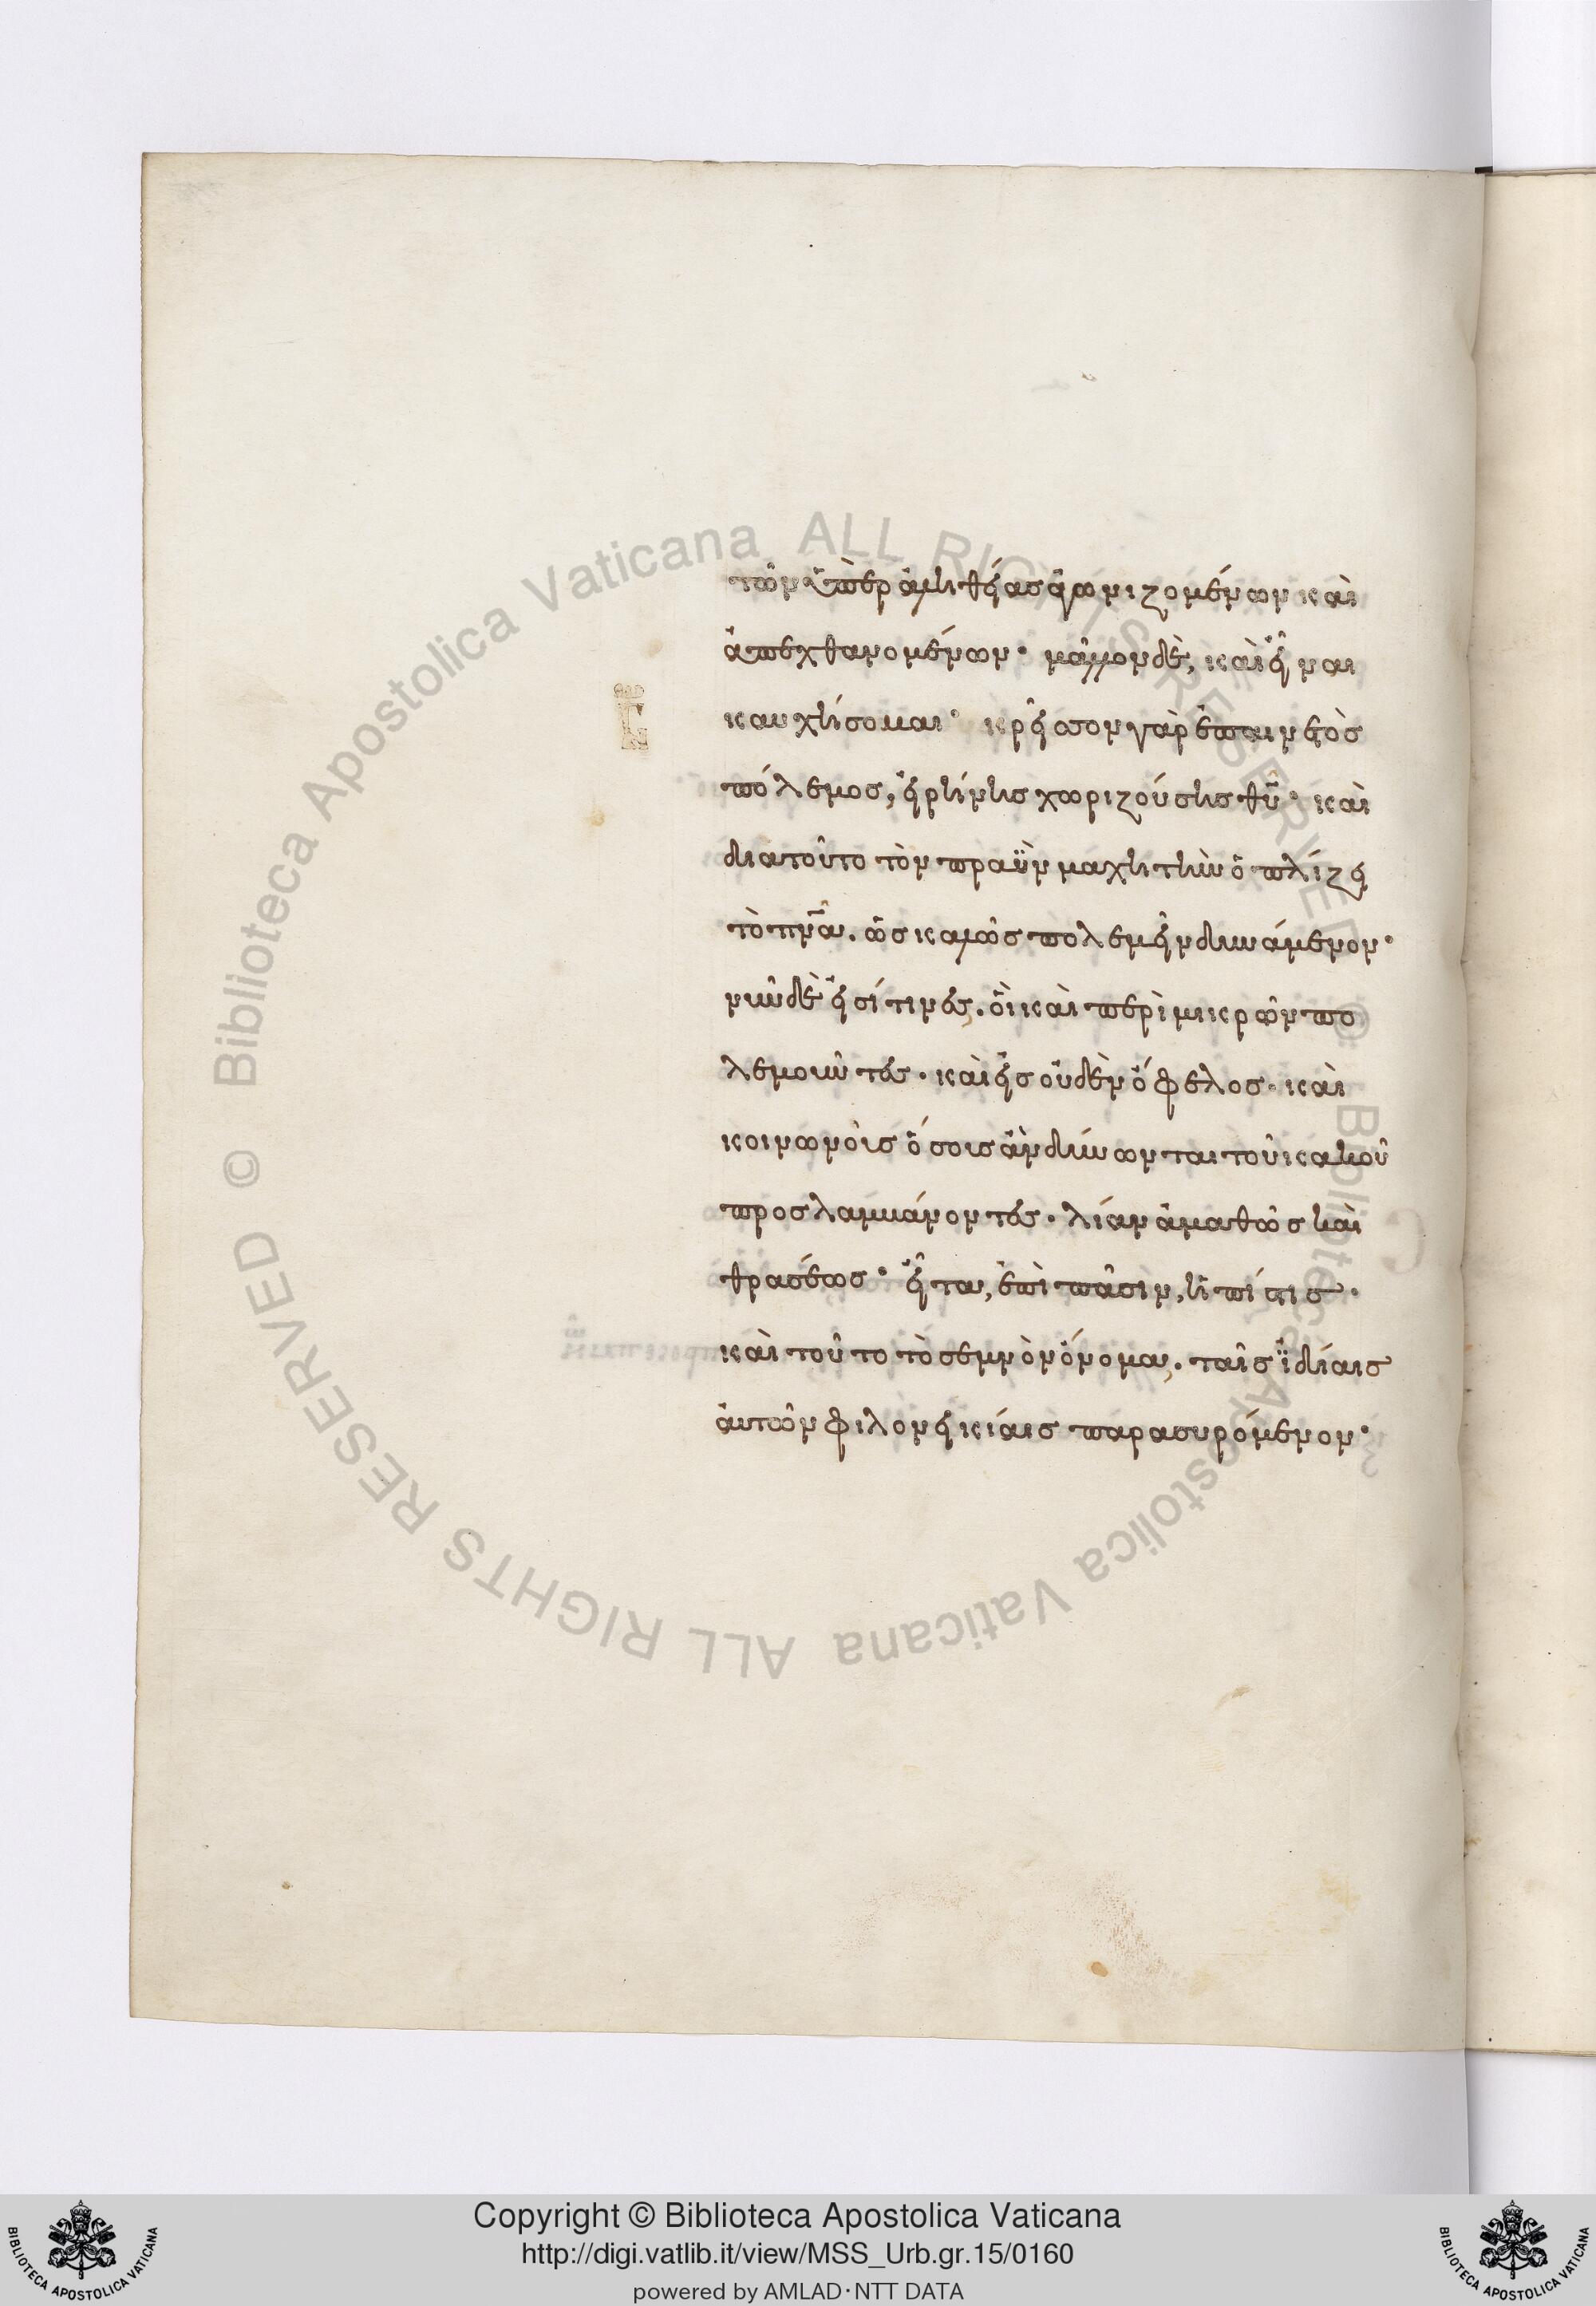 τῶν ὑπὲρ ἀληθείας ἀγωνιζομένων καὶ
ἀπεχθανομένων· μᾶλλον δὲ, καὶ εἶναι
καυχήσομαι· κρεῖσσον γὰρ ἐπαινετὸς
πόλεμος, εἰρήνης χωριζούσης θῦ· καὶ
διατοῦτο τὸν πραῢν μαχητὴν ὁπλίζει
τὸ πνᾶ. ὡς καλῶς πολεμεῖν δυνάμενον·
νῦν δὲ εἰσί τινες. οἱ καὶ περὶ μικρῶν πο
λεμοῦντες. καὶ εἰς οὐδὲν ὄφελος. καὶ
κοινωνοὺς ὅσους ἂν δύνωνται τοῦ κακοῦ
προσλαμβάνοντες. λίαν ἀμαθῶς καὶ
θρασέως· εἶτα, ἐπὶ πᾶσιν, ἡ πίστις.
καὶ τοῦτο τὸ σεμνὸν ὄνομα. ταῖς ϊδίαις
αὐτῶν φιλονεικίαις παρασυρόμενον·
© Biblioteca Apostolica Vaticana ALL RIGHTS RESERVED © Biblioteca Apostolica Vaticana ALL RIGHTS RESERVED
Copyright © Biblioteca Apostolica Vaticana
http://digi.vatlib.it/view/MSS_Urb.gr.15/0160
powered by AMLAD·NTT DATA
BIBLIOTECA APOSTOLICA VATICANA
BIBLIOTECA APOSTOLICA VATICANA